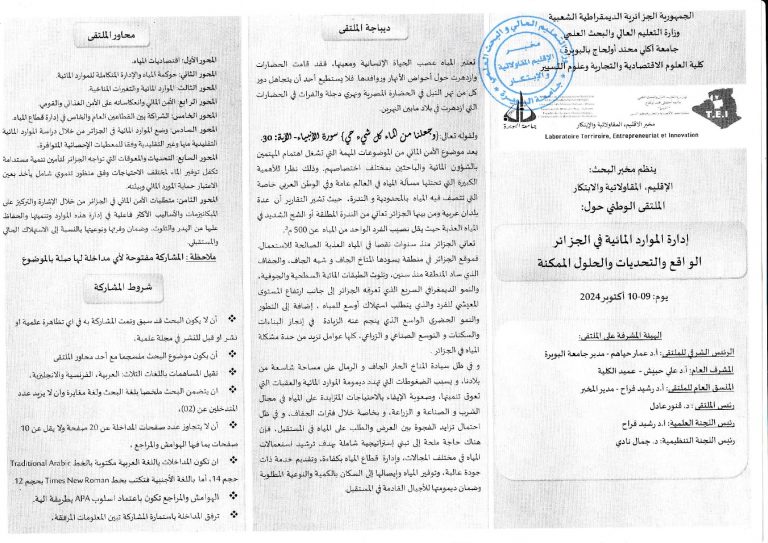 الجمهورية الجزائرية الديمقراطية الشعبية
وزارة التعليم العالي والبحث العلمي
جامعة أكلي محند أولحاج بالبويرة
كلية العلوم الاقتصادية والتجارية وعلوم التسيير
مخبر
الإقليم، المقاولاتية
والابتكار
T.E.I
جامعة البويرة
مخبر الإقليم، المقاولاتية والإبتكار
Laboratoire Terriroire, Entrepreneuriat et Innovation
ينظم مخبر البحث:
الإقليم، المقاولاتية والابتكار
الملتقى الوطني حول:
إدارة الموارد المائية في الجزائر
الواقع والتحديات والحلول الممكنة
يوم: 09-10 أكتوبر 2024
الهيئة المشرفة على الملتقى:
الرئيس الشرفي للملتقى: أ.د عمار حياهم - مدير جامعة البويرة
المشرف العام: أ.د علي حبيش - عميد الكلية
المنسق العام للملتقى: أ.د رشيد فراح - مدير المخبر
رئيس الملتقى: د. قنور عادل
رئيس اللجنة العلمية: أ.د رشيد فراح
رئيس اللجنة التنظيمية: د. جمال نادي
ديباجة الملتقى
تعتبر المياه عصب الحياة الإنسانية ومعينها، فقد قامت الحضارات
وازدهرت حول أحواض الأنهار وروافدها. فلا يستطيع أحد أن يتجاهل دور
كل من نهر النيل في الحضارة المصرية ونهري دجلة والفرات في الحضارات
التي ازدهرت في بلاد مابين النهرين.
ولقوله تعالى: {وجعلنا من الماء كل شيء حي} سورة الأنبياء- الآية: 30.
يعد موضوع الأمن المائي من الموضوعات المهمة التي تشغل اهتمام المهتمين
بالشؤون المائية والباحثين بمختلف اختصاصهم، وذلك نظرا للأهمية
الكبيرة التي تحتلها مسألة المياه في العالم عامة وفي الوطن العربي خاصة
التي تتصف فيه المياه بالمحدودية و الندرة، حيث تشير التقارير أن عدة
بلدان عربية ومن بينها الجزائر تعاني من الندرة المطلقة أو الشح الشديد في
المياه العذبة حيث يقل نصيب الفرد الواحد من المياه عن 500 م3.
تعاني الجزائر منذ سنوات نقصا في المياه العذبة الصالحة للاستعمال،
فموقع الجزائر في منطقة يسودها المناخ الجاف و شبه الجاف، والجفاف
الذي ساد المنطقة منذ سنين، وتلوث الطبقات المائية السطحية والجوفية،
والنمو الديمغرافي السريع الذي تعرفه الجزائر إلى جانب ارتفاع المستوى
المعيشي للفرد والذي يتطلب استهلاك أوسع للمياه ، إضافة إلى التطور
والنمو الحضري الواسع الذي ينجم عنه الزيادة في إنجاز البناءات
والسكنات و التوسع الصناعي و الزراعي، كلها عوامل تزيد من حدة مشكلة
المياه في الجزائر.
و في ظل سيادة المناخ الحار الجاف و الرمال على مساحة شاسعة من
بلادنا، و بسبب الضغوطات التي تهدد ديمومة الموارد المائية والعقبات التي
تعوق تنميتها، وصعوبة الإيفاء بالاحتياجات المتزايدة على المياه في مجال
الشرب و الصناعة و الزراعة، و بخاصة خلال فترات الجفاف، و في ظل
احتمال تزايد الفجوة بين العرض والطلب على المياه في المستقبل، فإن
هناك حاجة ملحة إلى تبني إستراتيجية شاملة بهدف ترشيد استعمالات
المياه في مختلف المجالات، وإدارة قطاع المياه بكفاءة، وتقديم خدمة ذات
جودة عالية، وتوفير المياه وإيصالها إلى السكان بالكمية والنوعية المطلوبة
وضمان ديمومتها للأجيال القادمة في المستقبل.
محاور الملتقى
المحور الأول: اقتصاديات المياه.
المحور الثاني: حوكمة المياه والإدارة المتكاملة للموارد المائية.
المحور الثالث: الموارد المائية والتغيرات المناخية.
المحور الرابع: الأمن المائي وانعكاساته على الأمن الغذائي والقومي.
المحور الخامس: الشراكة بين القطاعين العام والخاص في إدارة قطاع المياه.
المحور السادس: وضع الموارد المائية في الجزائر من خلال دراسة الموارد المائية
التقليدية منها وغير التقليدية وفقا للمعطيات الإحصائية المتوافرة.
المحور السابع: التحديات والمعوقات التي تواجه الجزائر لتأمين تنمية مستدامة
تكفل توفير الماء لمختلف الاحتياجات وفق منظور تنموي شامل يأخذ بعين
الاعتبار حماية المورد المائي وبيئته.
المحور الثامن: متطلبات الأمن المائي في الجزائر من خلال الإشارة والتركيز على
الميكانيزمات والأساليب الأكثر فاعلية في إدارة هذه الموارد وتنميتها والحفاظ
عليها من الهدر والتلوث، وضمان وفرتها ونوعيتها بالنسبة إلى الاستهلاك الحالي
والمستقبلي.
ملاحظة: المشاركة مفتوحة لأي مداخلة لها صلة بالموضوع
شروط المشاركة
❖ أن لا يكون البحث قد سبق وتمت المشاركة به في اي تظاهرة علمية او
نشر او قبل للنشر في مجلة علمية.
❖ أن يكون موضوع البحث منسجما مع أحد محاور الملتقى
❖ تقبل المساهمات باللغات الثلاث: العربية، الفرنسية والانجليزية.
❖ ان يتضمن البحث ملخصا بلغة البحث ولغة مغايرة وان لا يزيد عدد
المتدخلين عن (02).
❖ أن لا يتجاوز عدد صفحات المداخلة عن 20 صفحة ولا يقل عن 10
صفحات بما فيها الهوامش والمراجع .
❖ ان تكون المداخلات باللغة العربية مكتوبة بالخط Traditional Arabic
حجم 14، أما باللغة الأجنبية فتكتب بخط Times New Roman بحجم 12
❖ الهوامش والمراجع تكون باعتماد اسلوب APA بطريقة الية.
❖ ترفق المداخلة باستمارة المشاركة تبين المعلومات المرفقة.